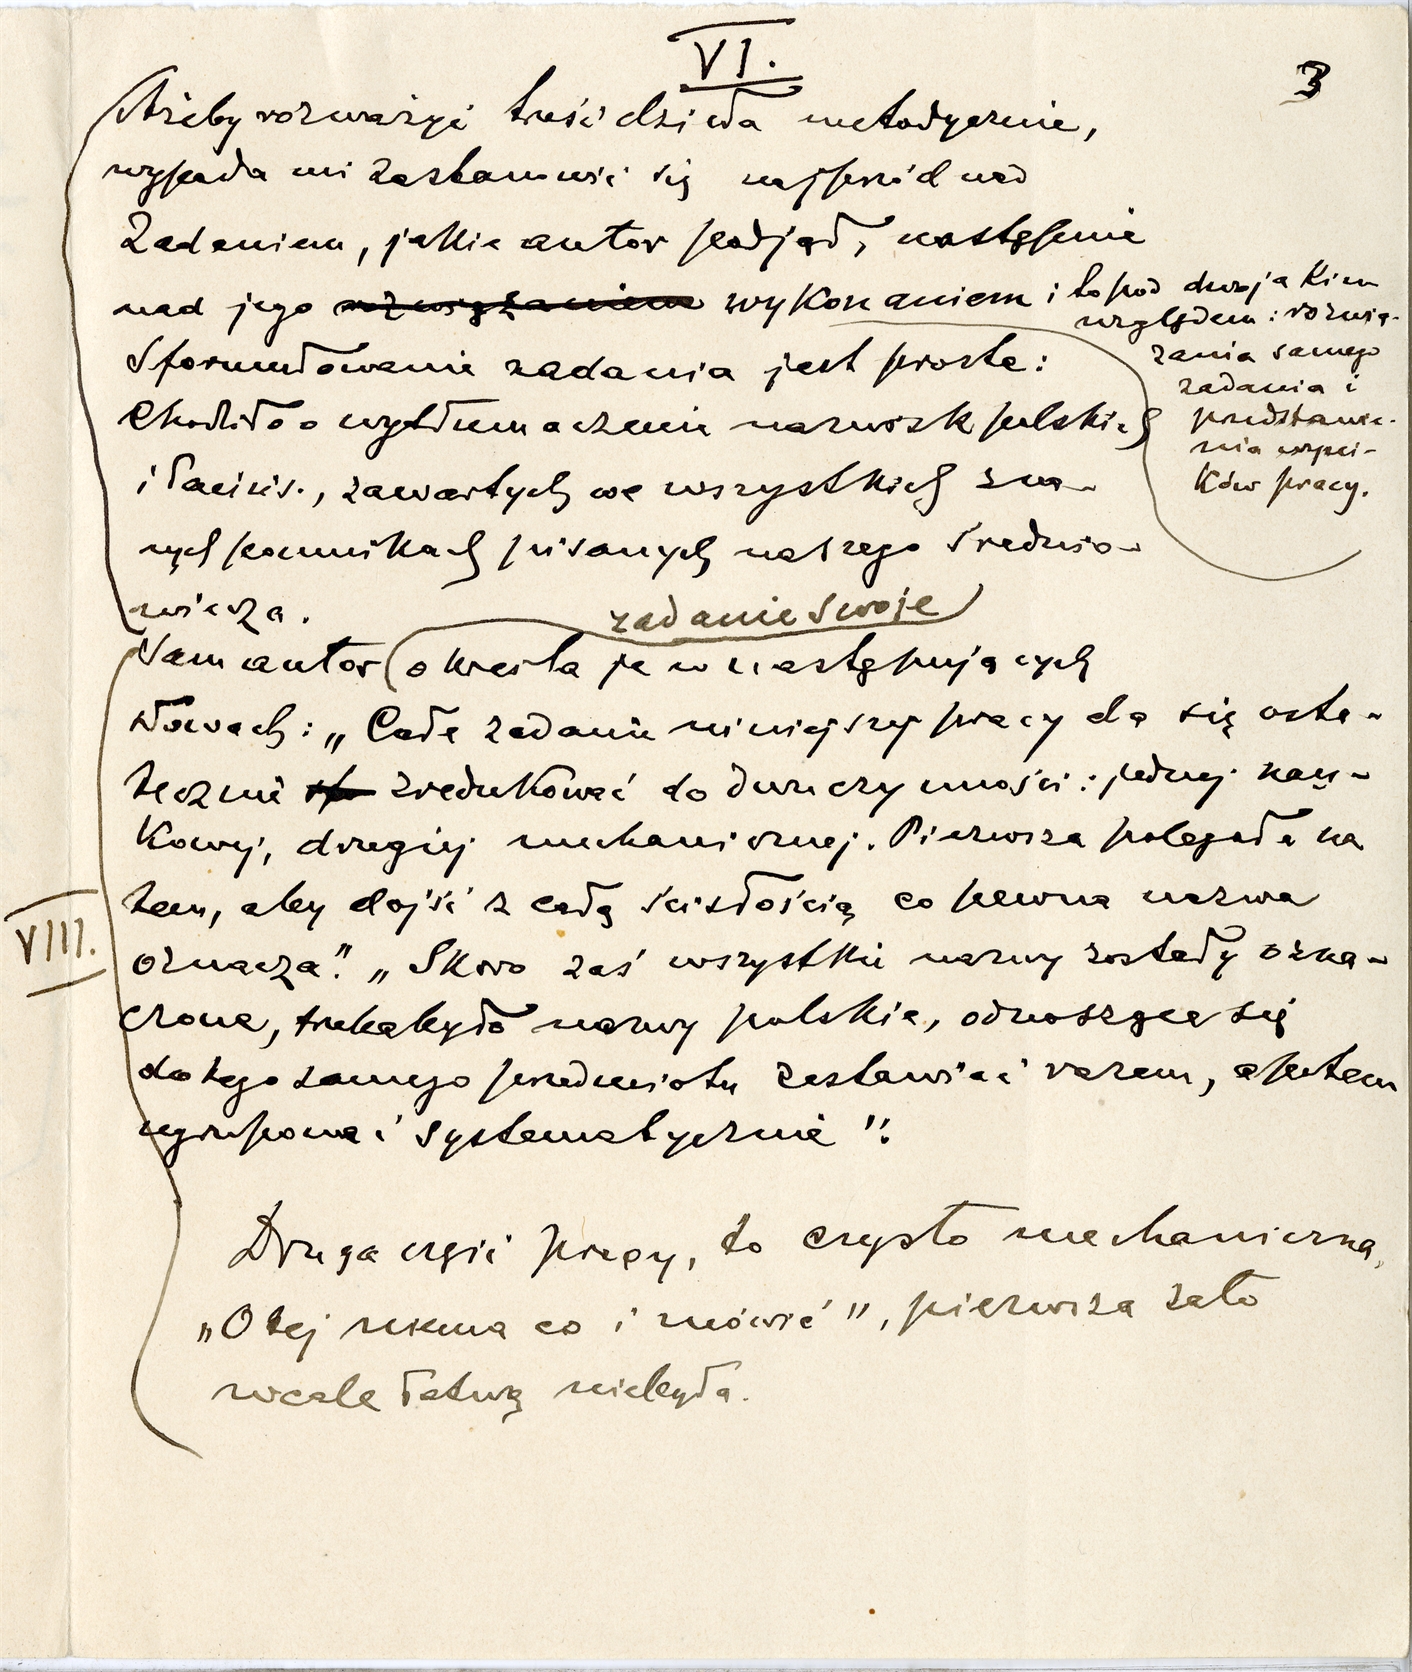 VI.
3
Ażeby rozważyć treść dzieła metodycznie,
wypada mi zastanowić się najprzód nad
zadaniem, jakie autor podjął, następnie
nad jego rozwiązaniem wykonaniem i to pod dwojakim
względem: rozwią-
zania samego
zadania i
przedstawie-
nia wyni-
ków pracy.
Sformułowanie zadania jest proste:
Chodziło o wytłumaczenie nazwisk polskich
i łacińs., zawartych we wszystkich zna-
nych pomnikach pisanych naszego średnio-
wiecza.
zadanie swoje
Sam autor określa je w następujących
słowach: „Całe zadanie niniejszej pracy da się osta-
tecznie zredukować do dwu czynności: jednej nau-
kowej, drugiej mechanicznej. Pierwsza polegała na
tem, aby dojść z całą ścisłością co pewna nazwa
oznacza". „Skoro zaś wszystkie nazwy zostały ozna-
czone, trzeba było nazwy polskie, odnoszące się
do tego samego przedmiotu zestawiać razem, a potem
ugrupować systematycznie".
VIII.
Druga część pracy, to czysto mechaniczna,
„O tej niema co i mówić", pierwsza zato
wcale łatwą nie była.